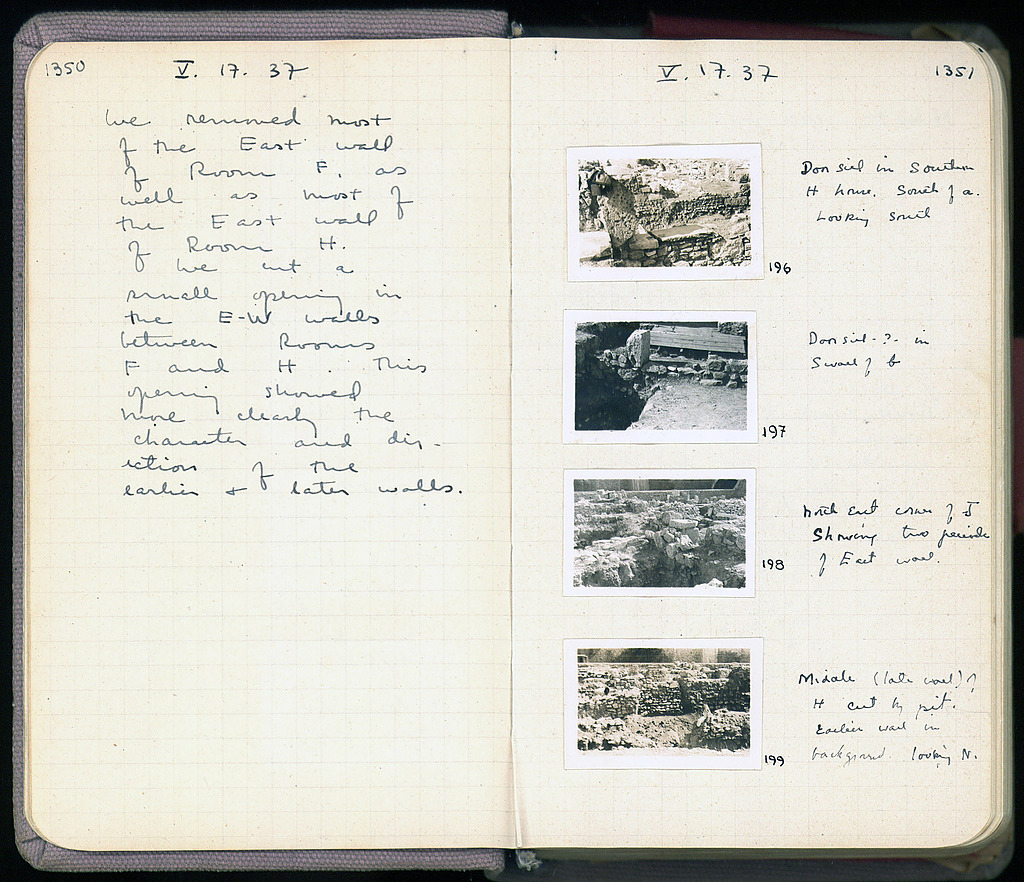 1350
V. 17. 37
We removed most
of the East wall
of Room F, as
well as most of
the East wall
of Room H.
We cut a
small opening in
the E-W walls
between Rooms
F and H. This
opening showed
more clearly the
character and dir-
ection of the
earlier + later walls.
V. 17. 37
1351
Door sill in Southern
H house. South of a.
Looking South
196
Door sill-?- in
S wall of b
197
North East corner of I
Showing two periods
of East wall.
198
Middle (late wall) of
H cut by pit.
Earlier wall in
background. looking N.
199